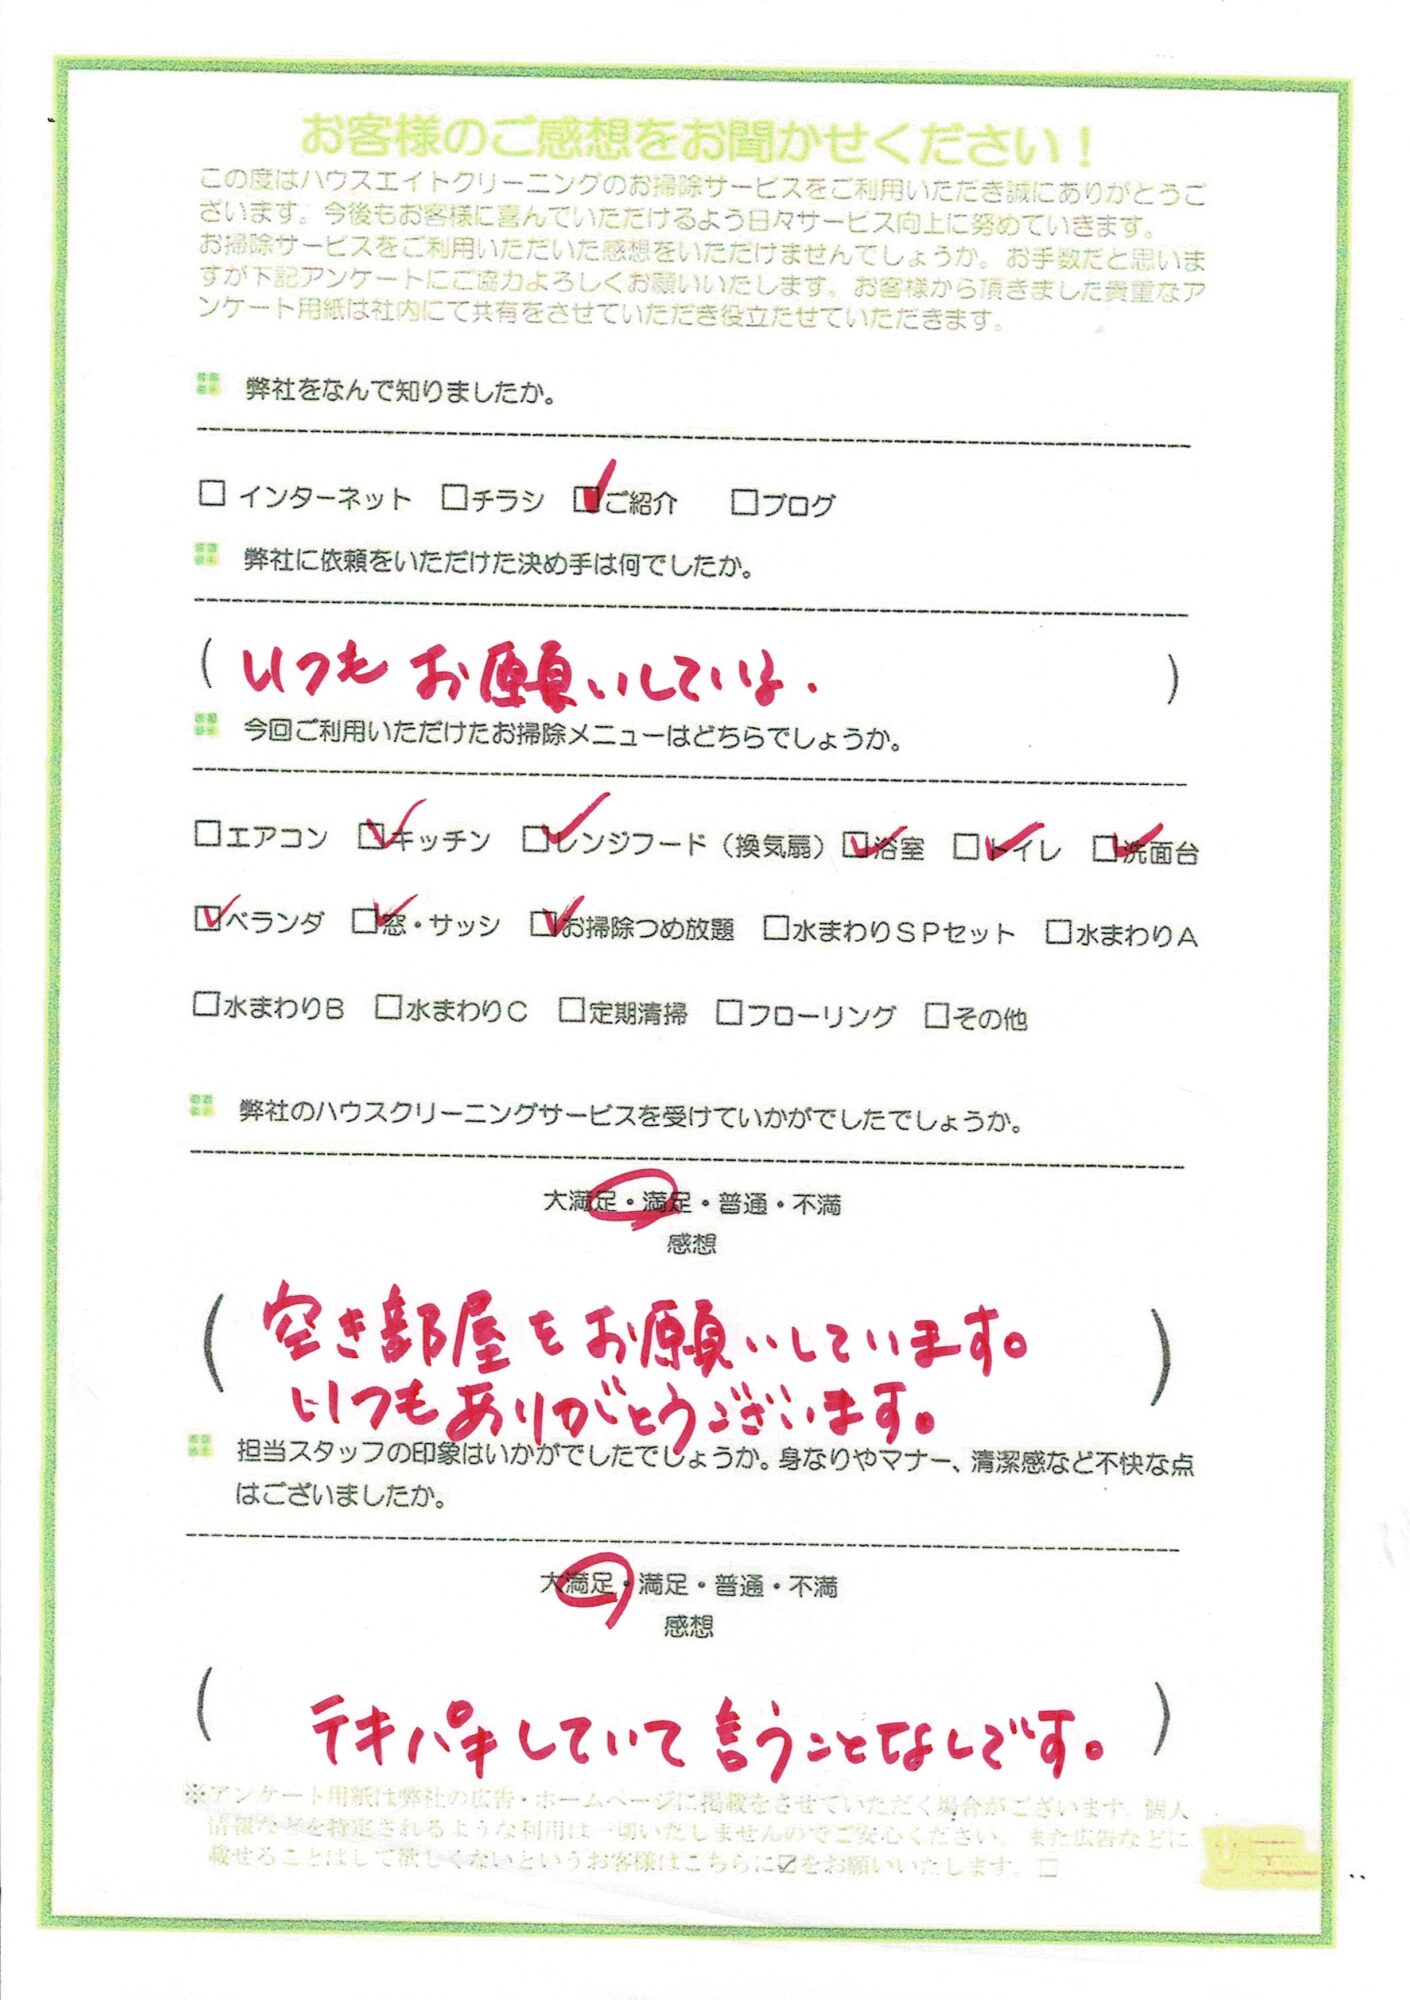 お客様のご感想をお聞かせください！
この度はハウスエイトクリーニングのお掃除サービスをご利用いただき誠にありがとうご
ざいます。今後もお客様に喜んでいただけるよう日々サービス向上に努めていきます。
お掃除サービスをご利用いただいた感想をいただけませんでしょうか。お手数だと思いま
すが下記アンケートにご協力よろしくお願いいたします。お客様から頂きました貴重なア
ンケート用紙は社内にて共有をさせていただき役立たせていただきます。
弊社をなんで知りましたか。
□ インターネット □チラシ ☑ご紹介 □ブログ
弊社に依頼をいただけた決め手は何でしたか。
( いつもお願いしている. )
今回ご利用いただけたお掃除メニューはどちらでしょうか。
□エアコン ☑キッチン ☑レンジフード（換気扇） ☑浴室 ☑トイレ ☑洗面台
☑ベランダ ☑窓・サッシ ☑お掃除つめ放題 □水まわりＳＰセット □水まわりＡ
□水まわりＢ □水まわりＣ □定期清掃 □フローリング □その他
弊社のハウスクリーニングサービスを受けていかがでしたでしょうか。
大満足・満足・普通・不満
感想
( 空き部屋をお願いしています。
いつもありがとうございます。 )
担当スタッフの印象はいかがでしたでしょうか。身なりやマナー、清潔感など不快な点
はございましたか。
大満足・満足・普通・不満
感想
( テキパキしていて言うことなしです。 )
※アンケート用紙は弊社の広告・ホームページに掲載をさせていただく場合がございます。個人
情報などを特定されるような利用は一切いたしませんのでご安心ください。また広告などに
載せることはして欲しくないというお客様はこちらに☑をお願いいたします。□